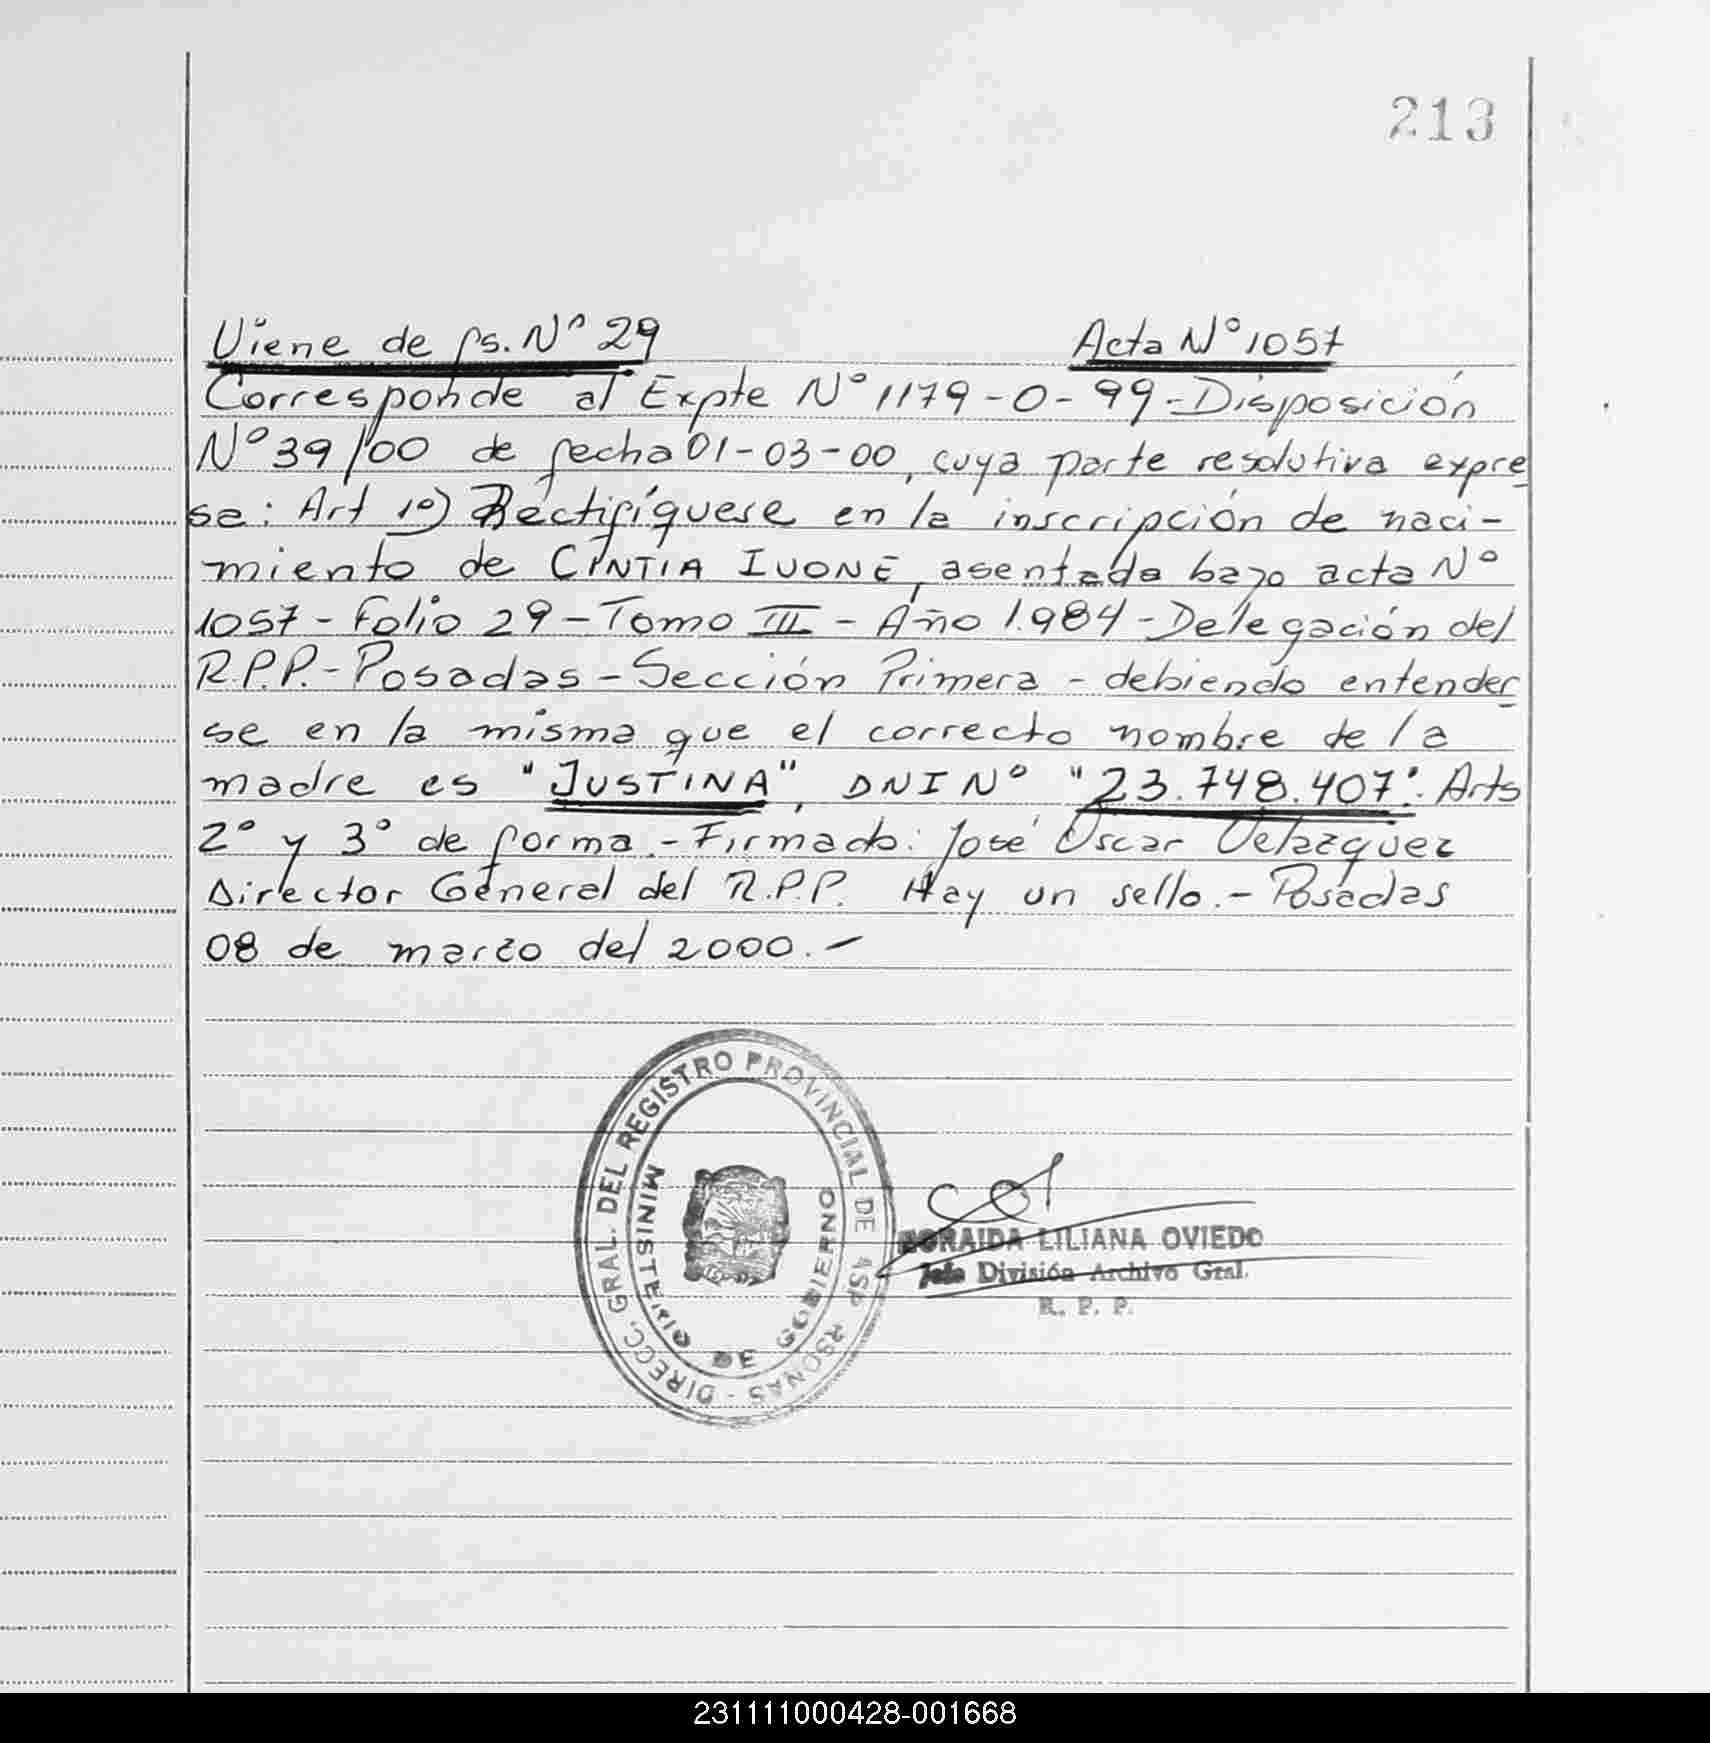 213
Viene de fs. Nº 29 Acta Nº 1057
Corresponde al Expte Nº 1179-0-99-Disposición
Nº 39/00 de fecha 01-03-00, cuya parte resolutiva expre
sa: Art 1º) Rectifíquese en la inscripción de naci-
miento de CINTIA IVONE, asentada bajo acta Nº
1057-Folio 29-Tomo III-Año 1.984-Delegación del
R.P.P.-Posadas-Sección Primera-debiendo entender
se en la misma que el correcto nombre de la
madre es "JUSTINA", DNI Nº "23.748.407". Arts
2º y 3º de forma.-Firmado: José Oscar Velazquez
Director General del R.P.P. Hay un sello.-Posadas
08 de marzo del 2000.-
DIRECC. GRAL. DEL REGISTRO PROVINCIAL DE
MINISTERIO DE GOBIERNO
LILIANA OVIEDO
Jefe División Archivo Gral.
R. P. P.
231111000428-001668